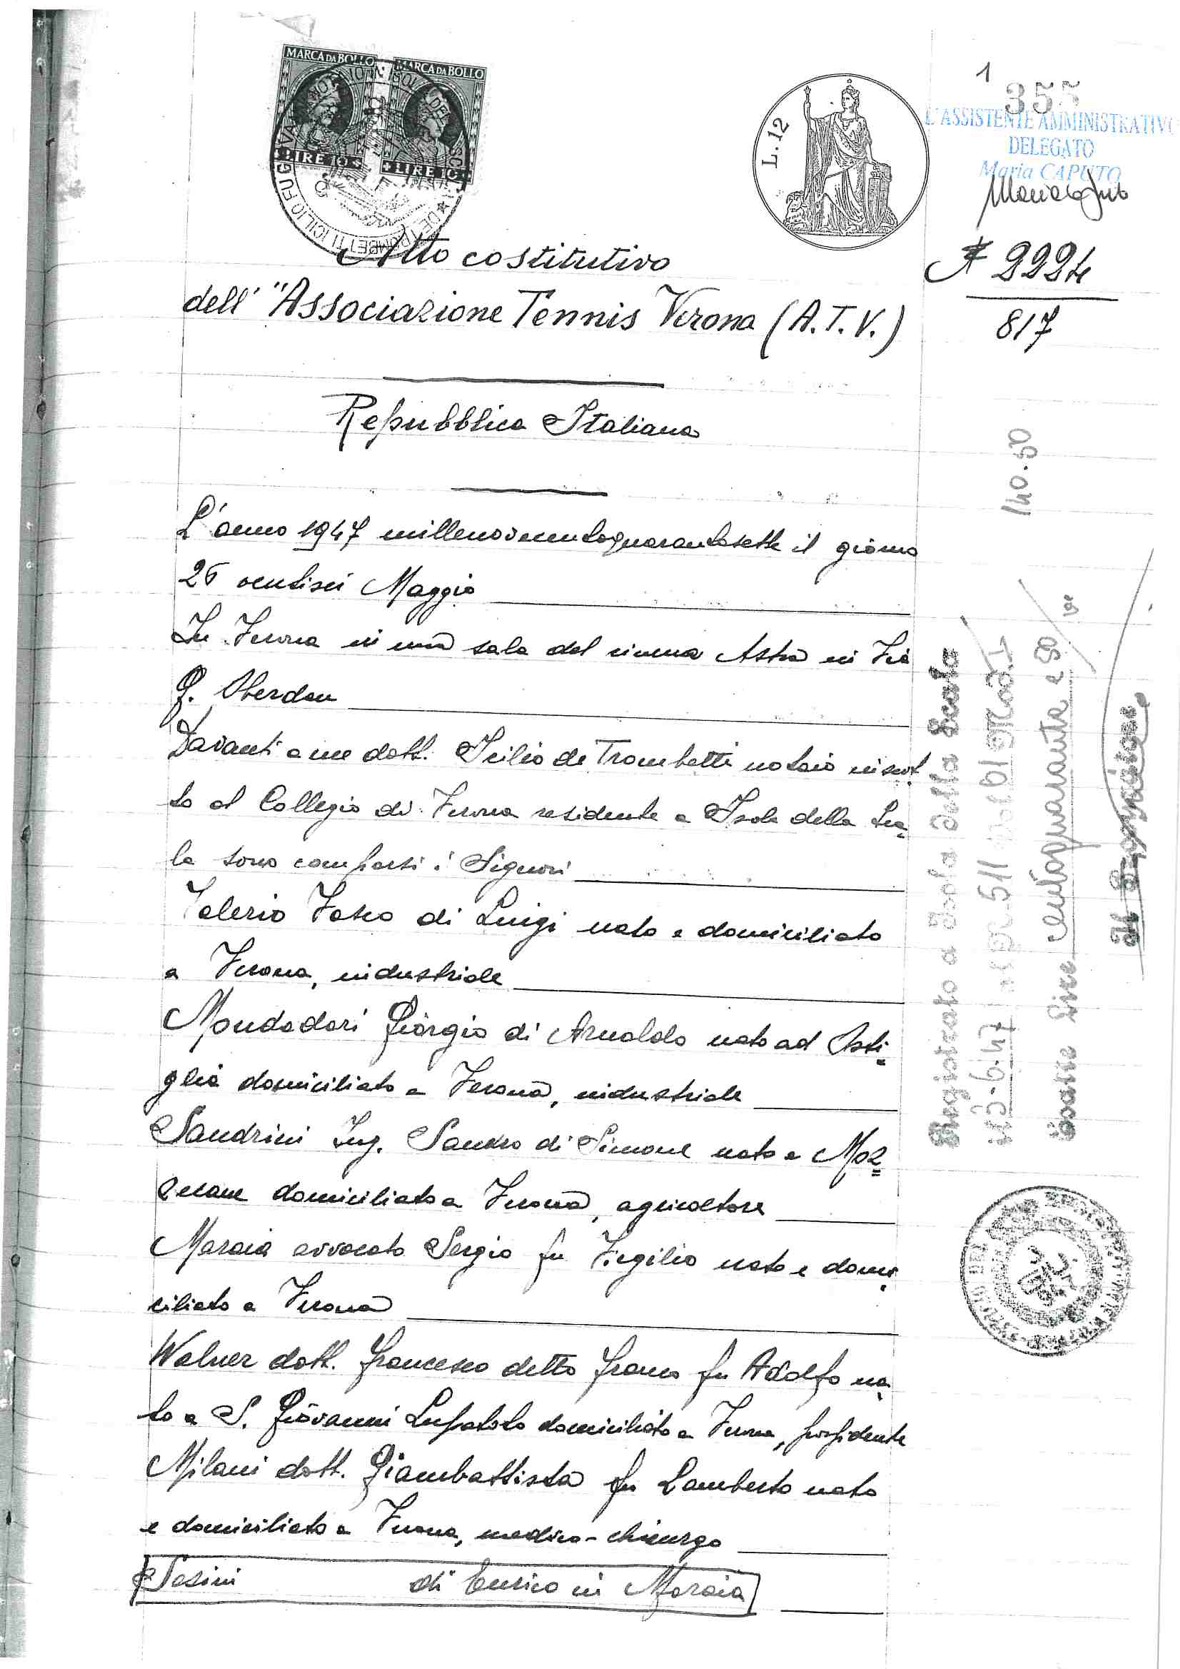 MARCA DA BOLLO
MARCA DA BOLLO
LIRE 10
LIRE 10
L. 12
1
355
L'ASSISTENTE AMMINISTRATIVO
DELEGATO
Maria CAPUTO
Atto costitutivo
dell' "Associazione Tennis Verona (A.T.V.)
N 2224
817
Repubblica Italiana
L'anno 1947 millenovecentoquarantasette il giorno
26 ventisei Maggio
In Verona in una sala del cinema Astra in Via
G. Oberdan
Davanti a me dott. Icilio de Trombetti notaio inscrit
to al Collegio di Verona residente a Isola della Sca
la sono comparsi i Signori
Valerio Vasco di Luigi nato e domiciliato
a Verona, industriale
Mondadori Giorgio di Arnoldo nato ad Osti=
glia domiciliato a Verona, industriale
Sandrini Ing. Sandro di Simone nato a Moz=
zecane domiciliato a Verona, agricoltore
Maraia avvocato Sergio fu Virgilio nato e domi
ciliato a Verona
Walner dott. Francesco detto Franco fu Adolfo na
to a S. Giovanni Lupatoto domiciliato a Verona, possidente
Milani dott. Giambattista fu Lamberto nato
e domiciliato a Verona, medico-chirurgo
Sesini di Enrico in Maraia
140.50
Registrato a Isola della Scala
il 3-6-47 al N 511 Vol 61 Mod. I
Esatte Lire centoquaranta e 50/